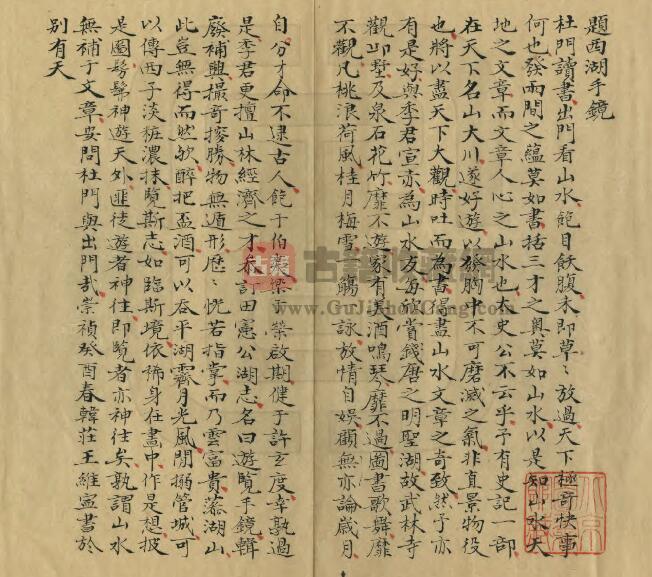 題西湖手鏡
杜門讀書出門看山水飽目飫腹未即草〻放過天下極奇快事
何也發兩間之蘊莫如書括三才之奥莫如山水以是知山水天
地之文章而文章人心之山水也太史公不云乎予有史記一部
在天下名山大川遂好遊以發胸中不可磨滅之氣非直景物役
也將以盡天下大觀時吐而為書得盡山水文章之奇致然予亦
有是好與李君宣亦為山水友每欣賞錢唐之明聖湖故武林寺
觀邱墅及泉石花竹靡不遊家有美酒鳴琴靡不過圖書歌舞靡
不觀凡桃浪荷風桂月梅雪一觴一詠放情自娛顧無亦論歲月
自分才命不逮古人飽于伯鸞梁于榮啟期健于許玄度幸孰過
是季君更擅山林經濟之才叅訂田憲公湖志名曰遊覽手鏡輯
廢補興撮奇搜勝物無遁形歷〻恍若指掌而乃雲富貴藻湖山
此豈無得而然欤醉把盃酒可以吞平湖霽月光風閒搦管城可
以傳西子淡粧濃抹覽斯志如臨斯境依稀身在畫中作是想披
是圖髣髴神遊天外匪徒遊者神往即覽者亦神往矣孰謂山水
無補于文章安問杜門與出門哉崇禎癸酉春韓莊王維寍書於
別有天
古籍
www.GuJiShuCang.com